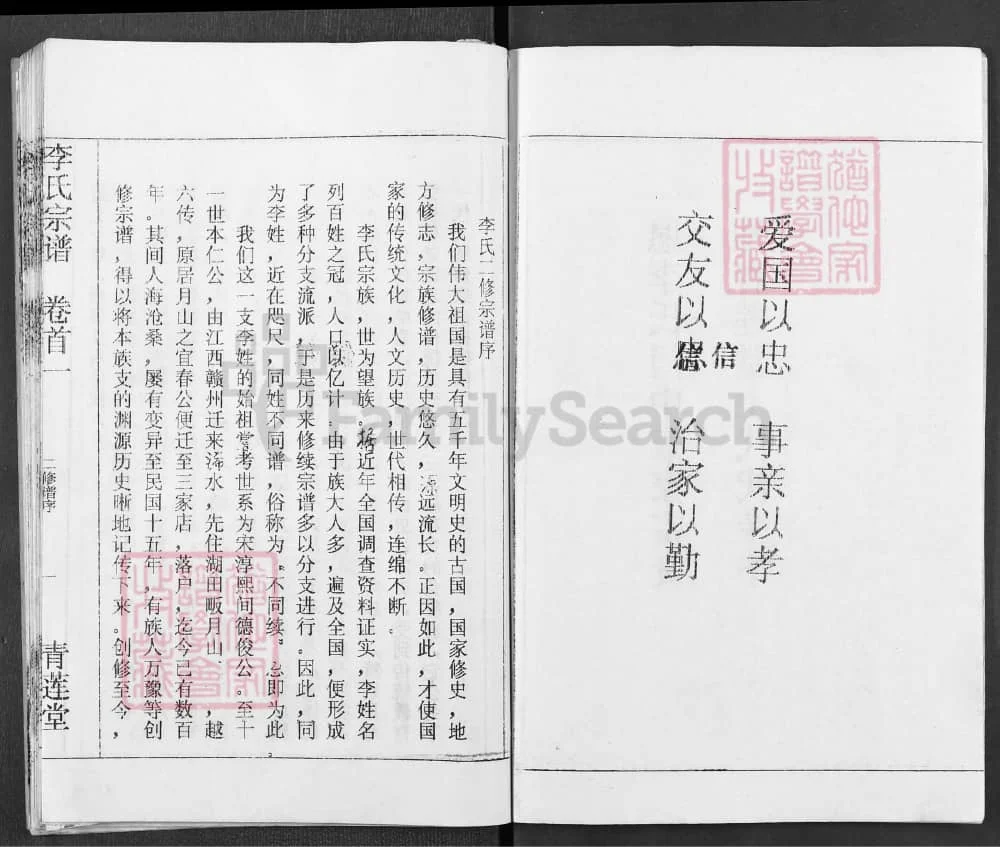 爱国以忠 事亲以孝
交友以信 治家以勤
信
李氏二修宗谱序
我们伟大祖国是具有五千年文明史的古国,国家修史,地
方修志,宗族修谱,历史悠久,源远流长。正因如此,才使国
家的传统文化,人文历史,世代相传,连绵不断。
李氏宗族,世为望族。据近年全国调查资料证实,李姓名
列百姓之冠,人口以亿计。由于族大人多,遍及全国,便形成
了多种分支流派,于是历来修续宗谱多以分支进行。因此,同
为李姓,近在咫尺,同姓不同谱,俗称为“不同续”。即为此
我们这一支李姓的始祖,考世系为宋淳熙间德俊公。至十
一世本仁公,由江西赣州迁来浠水,先住湖田畈月山,越
六传,原居月山之宜春公便迁至三家店,落户,迄今已有数百
年。其间人海沧桑,屡有变异至民国十五年,有族人万豫等创
修宗谱,得以将本族支的渊源历史晰地记传下来。创修至今,
李氏宗谱 卷首一 二修谱序 一 青莲堂
犹他家
谱学会
收藏
犹他家
谱学会
收藏
FamilySearch